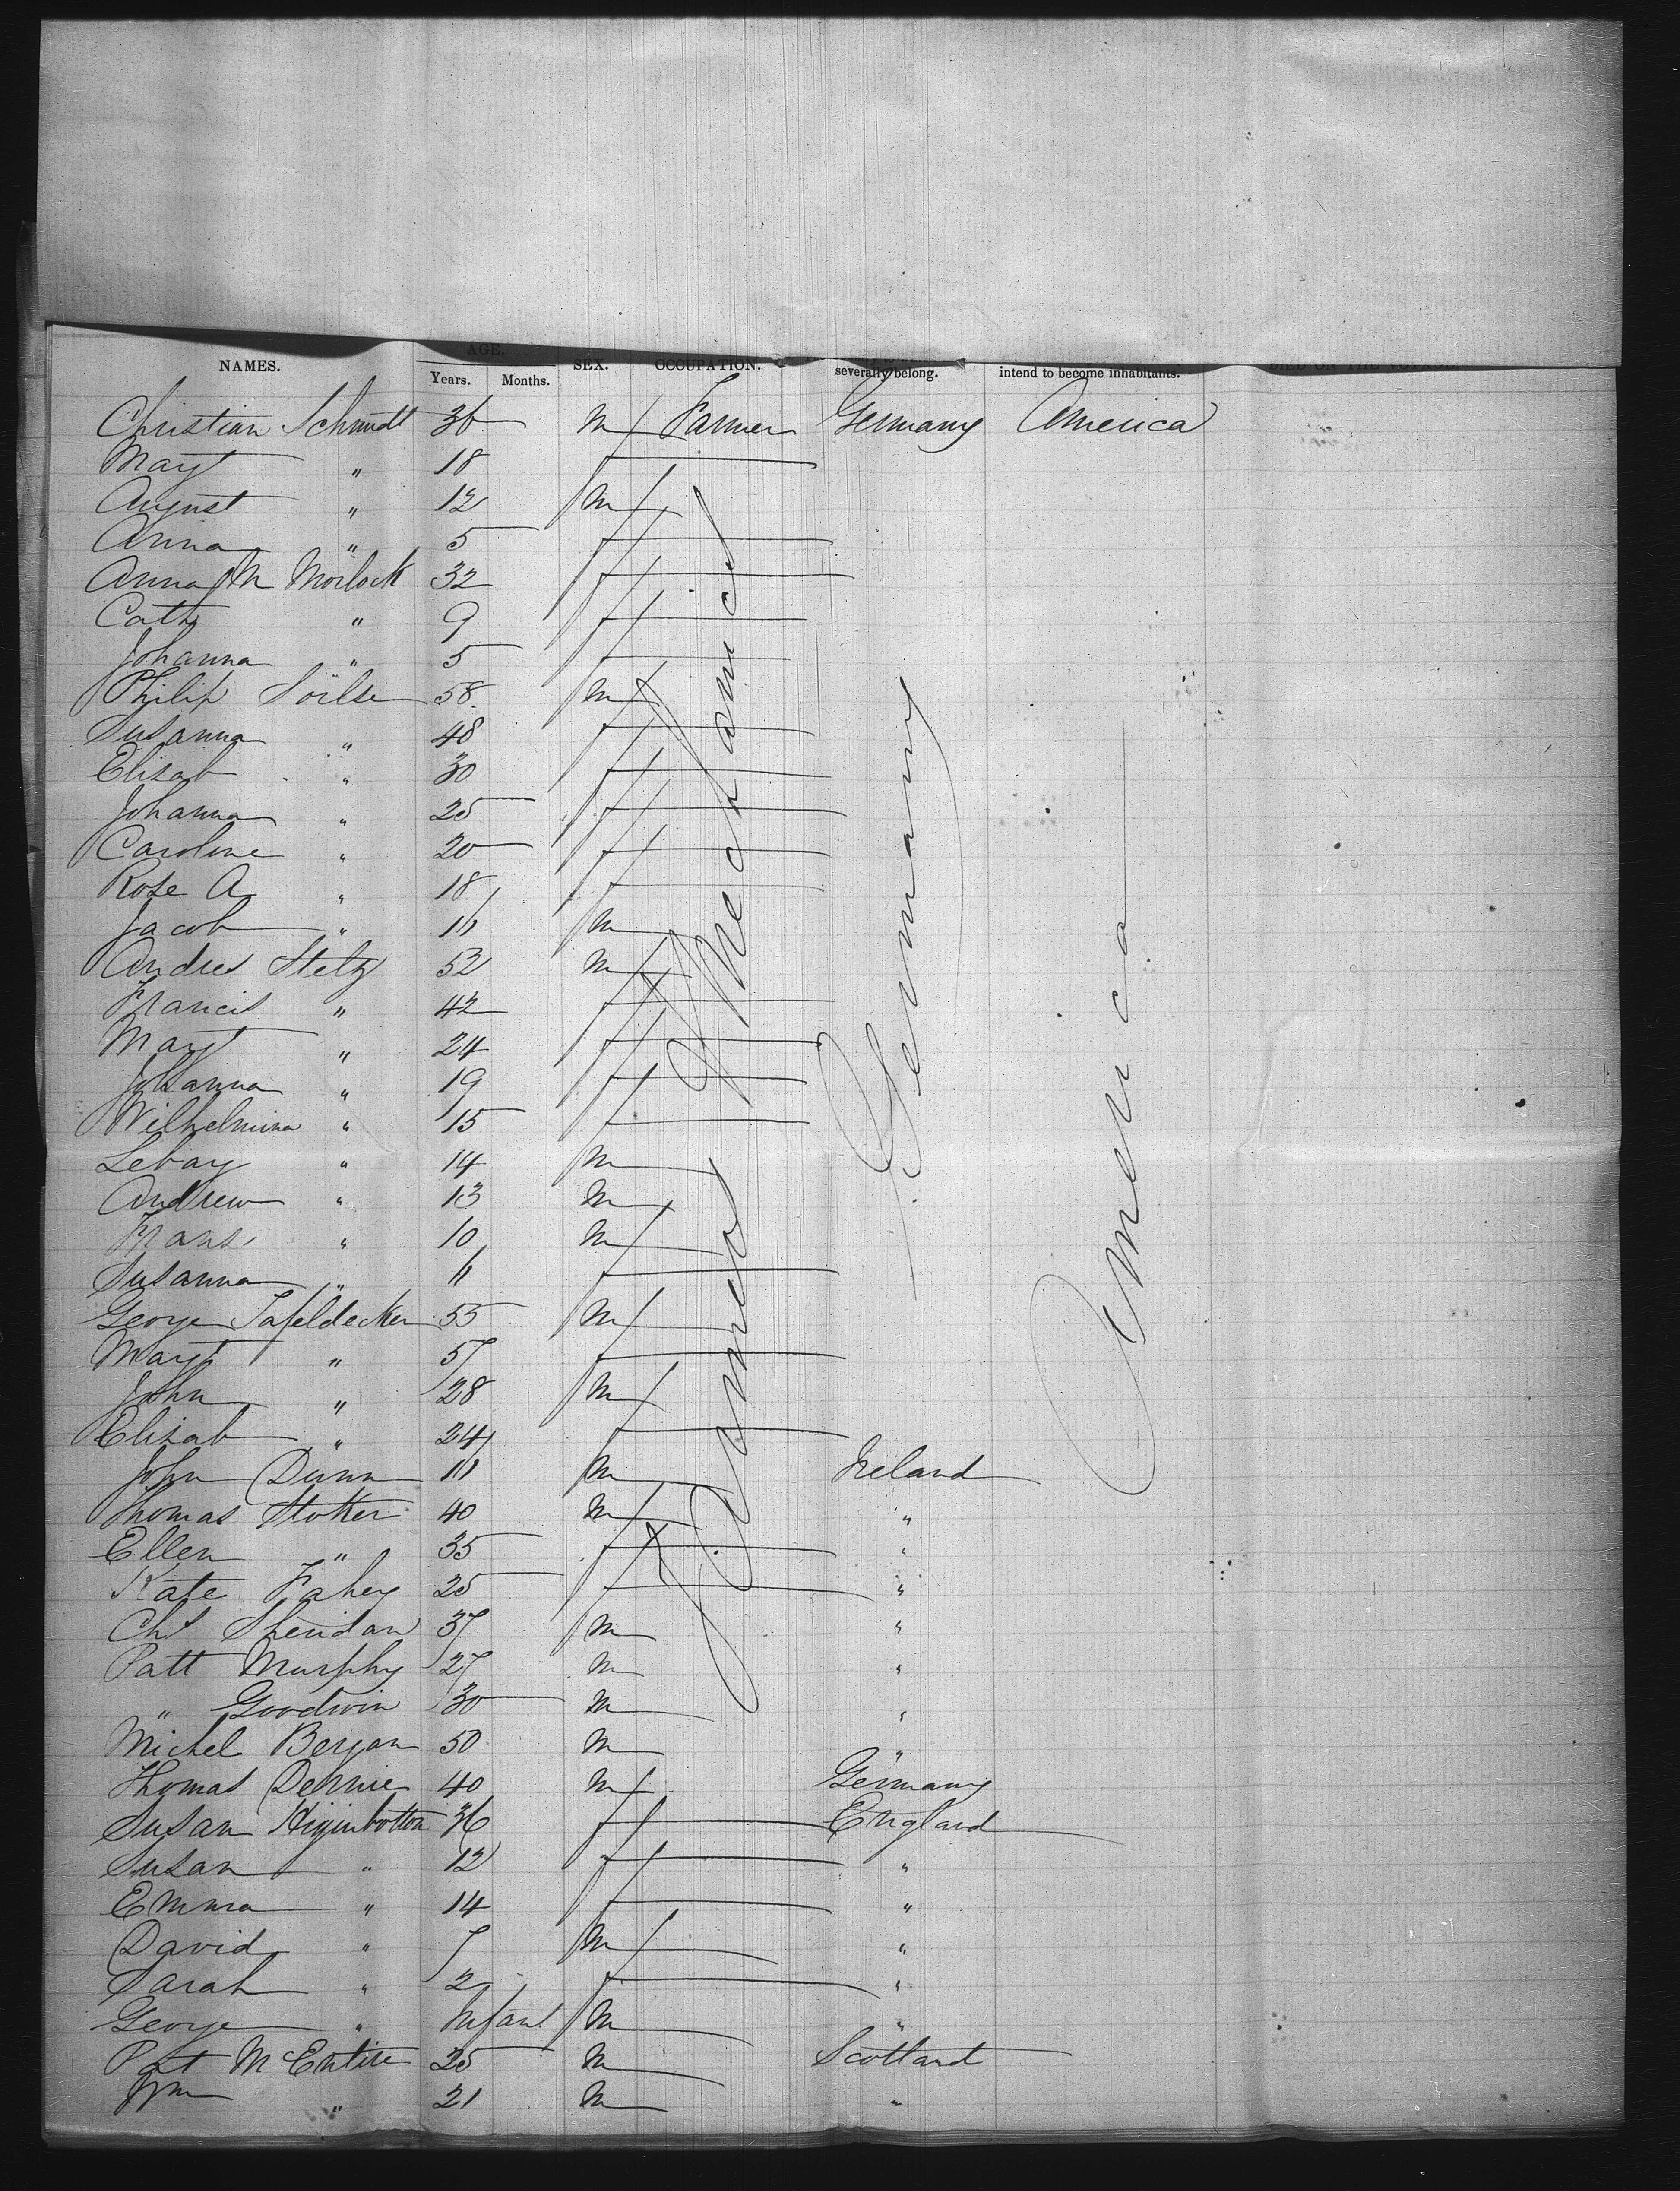 NAMES. AGE. Years. Months. SEX. OCCUPATION. severally belong. intend to become inhabitants. DIED ON THE VOYAGE.
Christian Schmidt 36 m Farmer Germany America
Margt " 18 f
August " 12 m
Anna " 5 f
Anna M Morlock 32 f
Cath " 9 f
Johanna " 5 f
Philip 58 m
Susanna " 48 f
Elisab " 30 f
Johanna " 25 f
Caroline " 20 f
Rose A " 18 f
Jacob " m
Andres Stelz 52 m
Francis " 42 f
Margt " 24 f
Johanna " 19 f
Wilhelmina " 15 f
" 14 m
Andrew " 13 m
Frans " 10 m
Susanna " f
George Tafeldecker 55 m
Margt " 57 f
John " 28 m
Elisab " 24 f
Farmers & Mechanics
Germany
America
John Dunn m Ireland
Thomas Stoker 40 m "
Ellen " 35 f "
Kate Fahey 25 f "
Chs Sheridan 37 m "
Patt Murphy 27 m "
" Goodwin 30 m "
Michel Bergan 50 m "
Thomas 40 m Germany
Susan Higinbotton 36 f England
Susan " 12 f "
Emma " 14 f "
David " 7 m "
Sarah " 2 f "
George " Infant m "
Pat McEntire 25 m Scotland
Wm " 21 m "